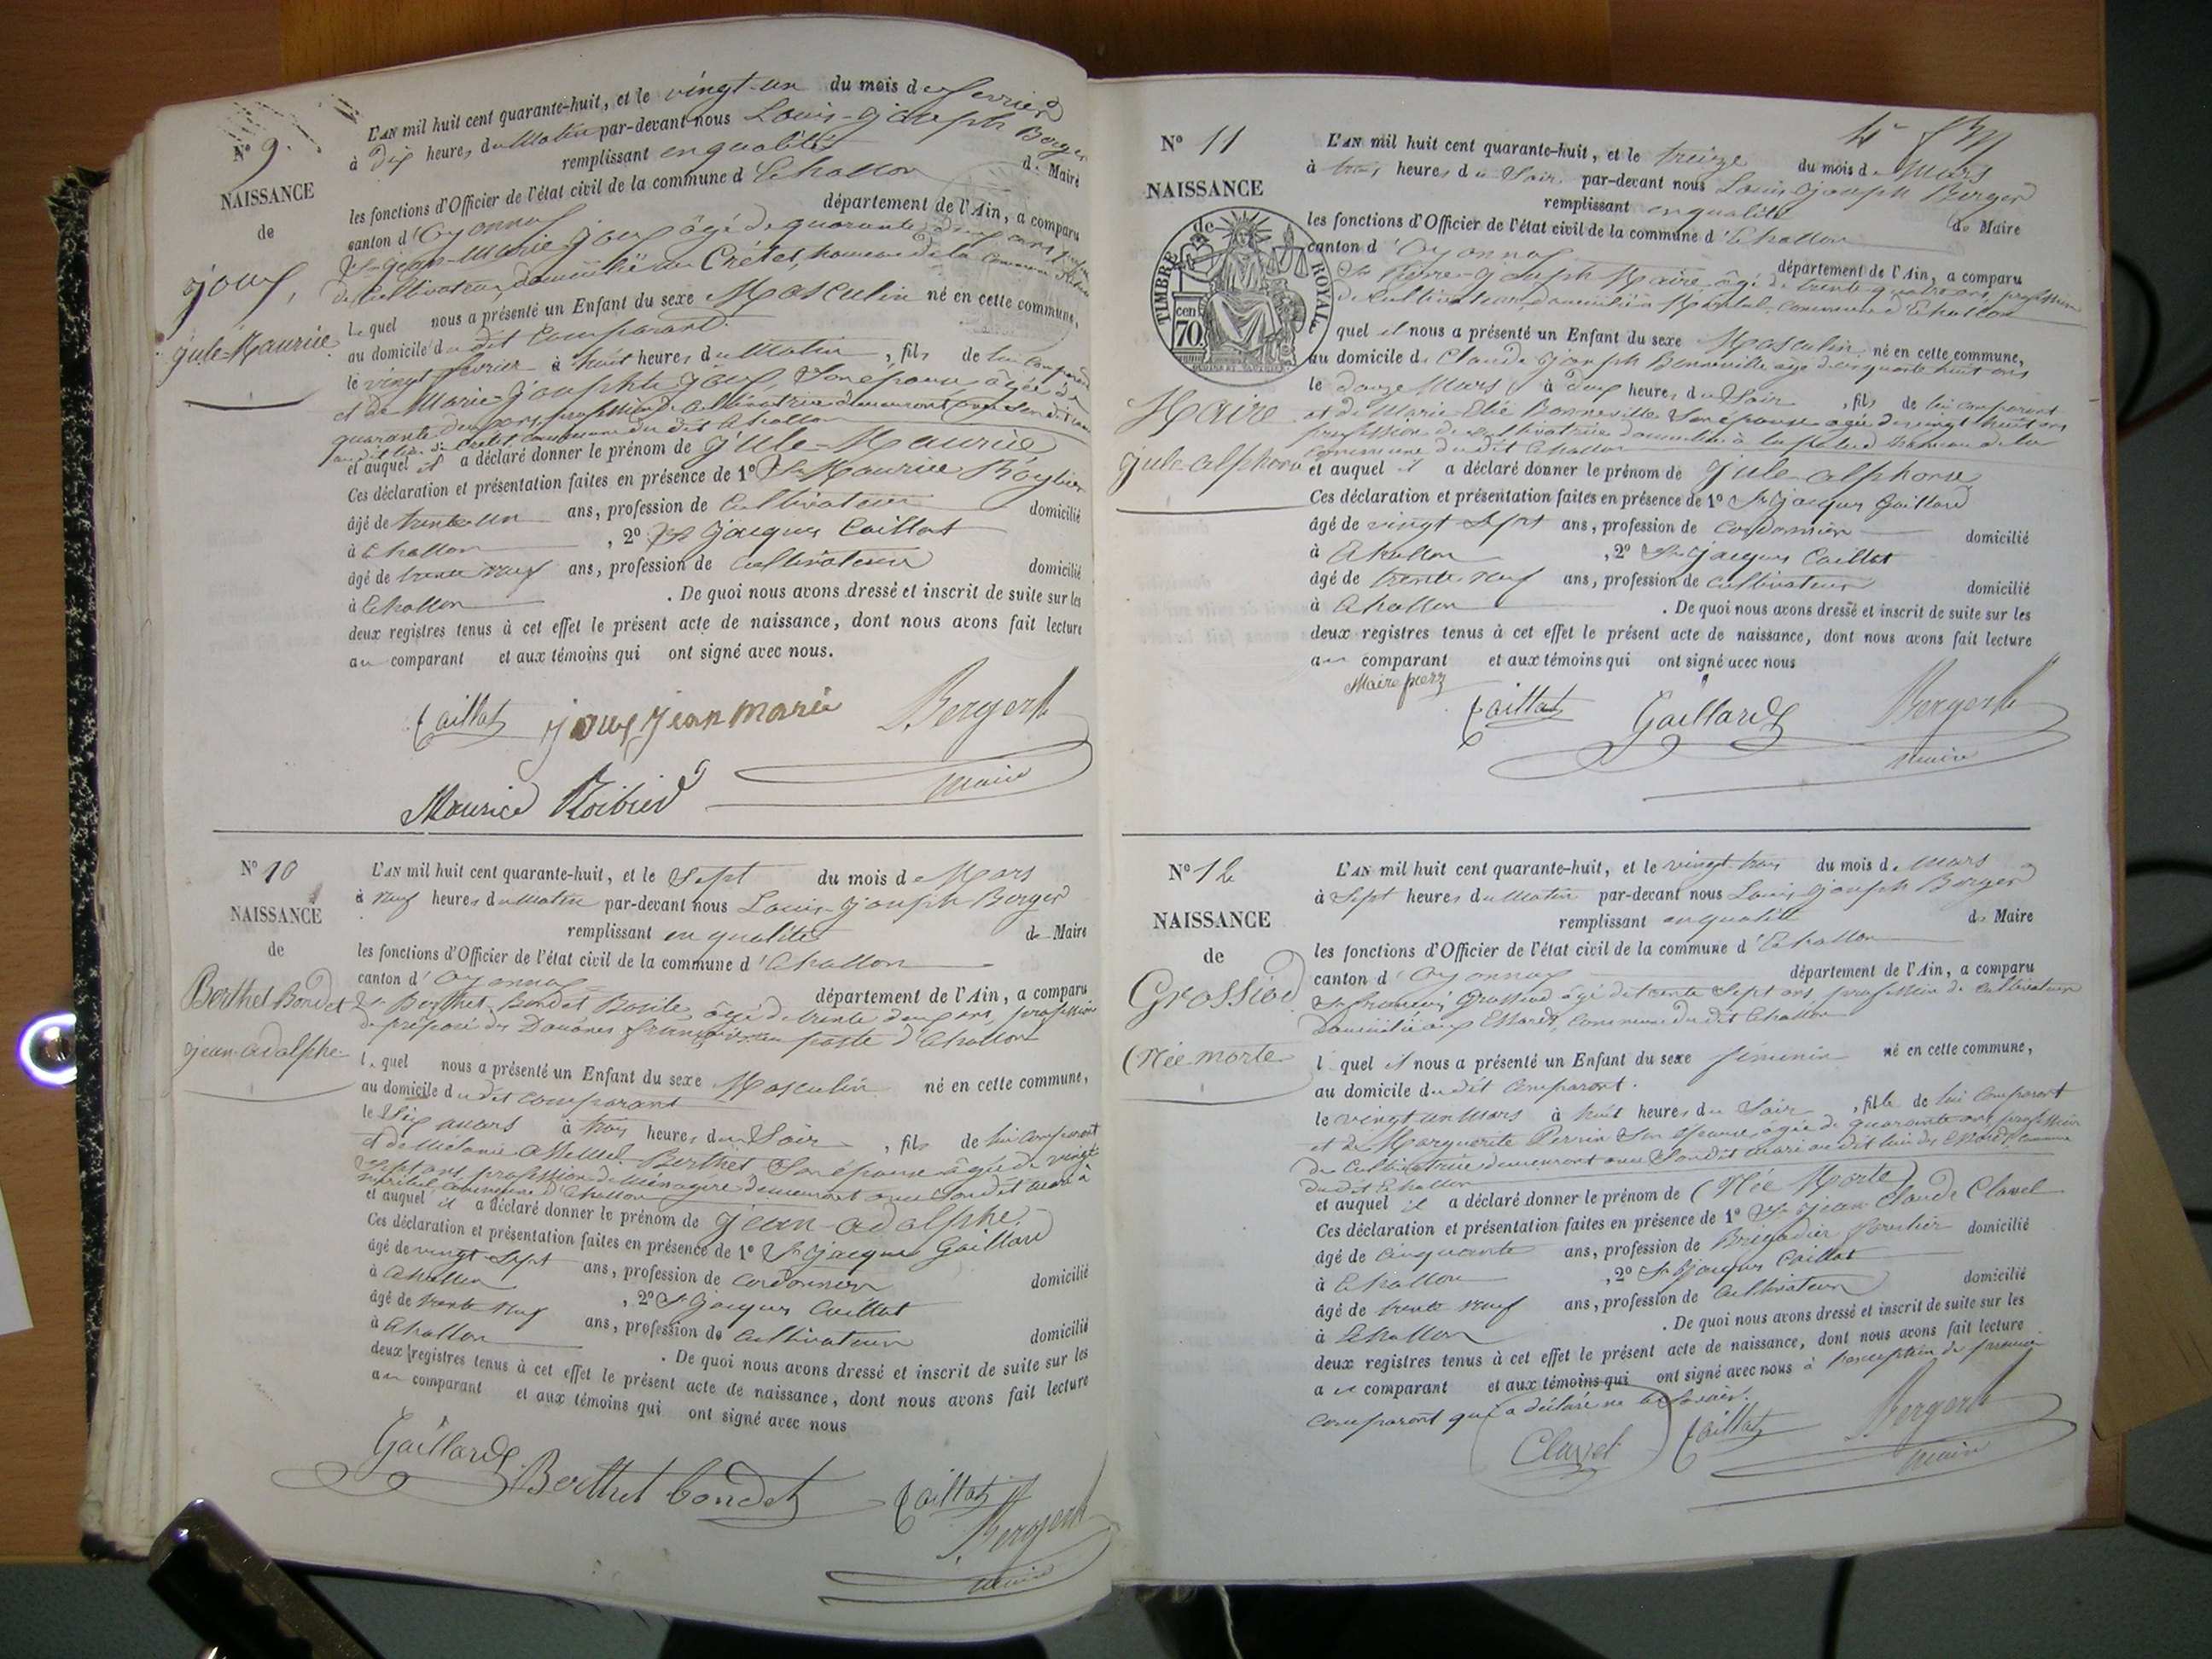 N° 9.
NAISSANCE
de
joux,
jule-Maurice
L'AN mil huit cent quarante-huit, et le vingt-un du mois de fevrier
à dix heures du Matin par-devant nous Louis-joseph Berger
remplissant en qualité de Maire
les fonctions d'Officier de l'état civil de la commune d'Echallon
canton d'Oyonnax département de l'Ain, a comparu
Sr jean-Marie joux âgé de quarante deux ans, profession
de Cultivateur, domicilié au Crétet, hameau de la Commune
lequel nous a présenté un Enfant du sexe Masculin né en cette commune,
au domicile du dit Comparant.
le vingt fevrier à huit heures du Matin, fils de lui Comparant
et de Marie josephte joux, Son épouse âgée de
quarante deux ans, profession de Cultivatrice demeurant avec Son dit mari
au dit lieu du Crétet, commune du dit Echallon
et auquel il a déclaré donner le prénom de jule-Maurice
Ces déclaration et présentation faites en présence de 1° Sr Maurice Roybier
âgé de trente un ans, profession de Cultivateur domicilié
à Echallon, 2° Sr jacques Caillat
âgé de trente neuf ans, profession de Cultivateur domicilié
à Echallon. De quoi nous avons dressé et inscrit de suite sur les
deux registres tenus à cet effet le présent acte de naissance, dont nous avons fait lecture
au comparant et aux témoins qui ont signé avec nous.
Caillat joux jean marie Berger
Maurice Roibier maire
N° 10
NAISSANCE
de
Berthet Bondet
jean-adolphe
L'AN mil huit cent quarante-huit, et le Sept du mois de Mars
à neuf heures du Matin par-devant nous Louis-joseph Berger
remplissant en qualité de Maire
les fonctions d'Officier de l'état civil de la commune d'Echallon
canton d'Oyonnax département de l'Ain, a comparu
Sr Berthet-Bondet Basile, âgé de trente deux ans, profession
de préposé des Douanes françaises au poste d'Echallon
lequel nous a présenté un Enfant du sexe Masculin né en cette commune,
au domicile du dit comparant
le Six mars à trois heures du Soir, fils de lui comparant
et de Mélanie Berthet Son épouse âgée de vingt
Sept ans, profession de Ménagère demeurant avec Son dit mari à
commune d'Echallon
et auquel il a déclaré donner le prénom de jean-adolphe.
Ces déclaration et présentation faites en présence de 1° Sr jacques Gaillard
âgé de vingt-Sept ans, profession de cordonnier domicilié
à Echallon, 2° Sr jacques Caillat
âgé de trente-neuf ans, profession de cultivateur domicilié
à Echallon. De quoi nous avons dressé et inscrit de suite sur les
deux registres tenus à cet effet le présent acte de naissance, dont nous avons fait lecture
au comparant et aux témoins qui ont signé avec nous
Gaillard Berthet bondet Caillat
Berger
maire
N° 11
NAISSANCE
de
TIMBRE ROYAL
70 cen
Maire
jule-alphonse
L'AN mil huit cent quarante-huit, et le treize du mois de Mars
à trois heures du Soir par-devant nous Louis joseph Berger
remplissant en qualité de Maire
les fonctions d'Officier de l'état civil de la commune d'Echallon
canton d'Oyonnax département de l'Ain, a comparu
Sr Pierre-joseph Maire, âgé de trente-quatre ans, profession
de Cultivateur, domicilié commune d'Echallon
quel il nous a présenté un Enfant du sexe Masculin né en cette commune,
au domicile de Claude joseph Bonneville âgé de quarante huit ans
le douze Mars à deux heures du Soir, fils de lui comparant
et de Marie Elié Bonneville Son épouse agée de vingt huit ans
profession de cultivatrice hameau de la
commune du dit Echallon
et auquel il a déclaré donner le prénom de jule-alphonse
Ces déclaration et présentation faites en présence de 1° Sr jacques Gaillard
âgé de vingt Sept ans, profession de cordonnier domicilié
à Echallon, 2° Sr jacques Caillat
âgé de trente neuf ans, profession de cultivateur domicilié
à Echallon. De quoi nous avons dressé et inscrit de suite sur les
deux registres tenus à cet effet le présent acte de naissance, dont nous avons fait lecture
au comparant et aux témoins qui ont signé avec nous
Maire
Caillat Gaillard Berger
maire
N° 12
NAISSANCE
de
Grossiod
(Née morte
L'AN mil huit cent quarante-huit, et le vingt-trois du mois de Mars
à Sept heures du Matin par-devant nous Louis joseph Berger
remplissant en qualité de Maire
les fonctions d'Officier de l'état civil de la commune d'Echallon
canton d'Oyonnax département de l'Ain, a comparu
Sr François Grossiod âgé de trente Sept ans, profession de cultivateur
Domicilié aux Essards, Commune du dit Echallon
lequel il nous a présenté un Enfant du sexe féminin né en cette commune,
au domicile du dit Comparant.
le vingt un Mars à huit heures du Soir, fille de lui Comparant
et de Marguerite Perrin Son épouse, agée de quarante ans, profession
de Cultivatrice demeurant avec Son dit mari au dit lieu des Essards, Commune
du dit Echallon
et auquel il a déclaré donner le prénom de (Née Morte)
Ces déclaration et présentation faites en présence de 1° Sr jean Claude Clavel
âgé de Cinquante ans, profession de Brigadier forestier domicilié
à Echallon, 2° Sr jacques Caillat
âgé de trente neuf ans, profession de Cultivateur domicilié
à Echallon. De quoi nous avons dressé et inscrit de suite sur les
deux registres tenus à cet effet le présent acte de naissance, dont nous avons fait lecture
au comparant et aux témoins qui ont signé avec nous à l'exception du premier
comparant qui a déclaré ne le Savoir.
Clavel Caillat Berger
maire